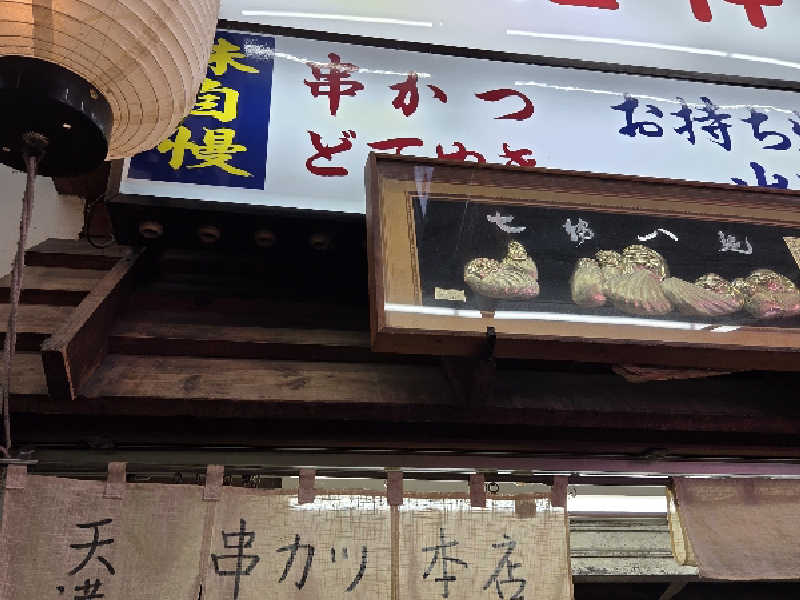 味自慢
串かつ
どてやき
お持ち
七転八起
天満
串カツ
本店